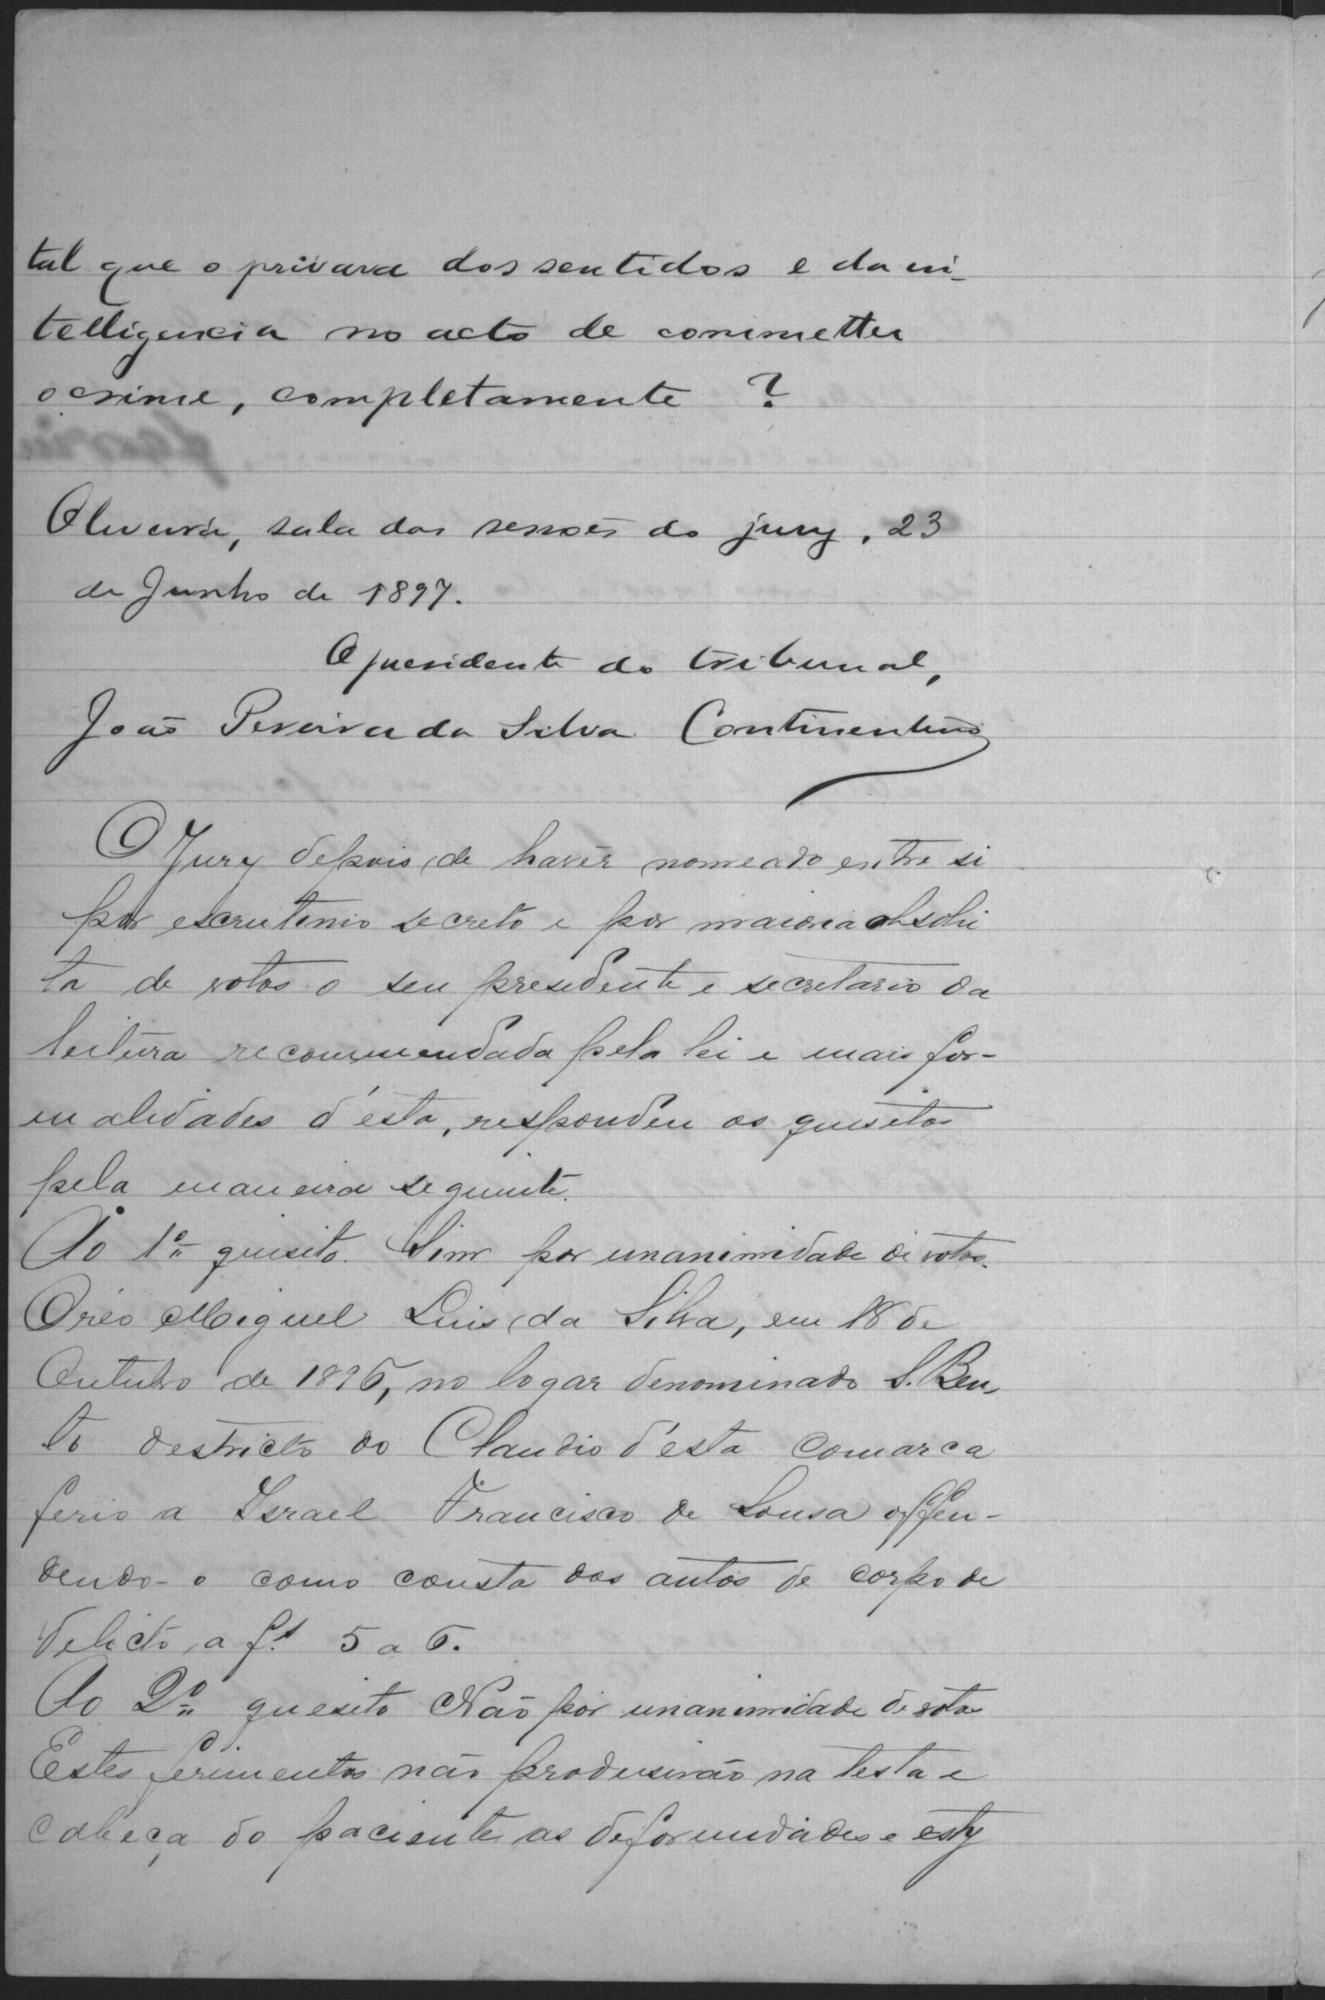 tal que o privara dos sentidos e da in-
telligencia no acto de commetter
o crime, completamente ?
Oliveira, sala das sessões do jury, 23
de Junho de 1897.
O presidente do tribunal,
João Pereira da Silva Continentino
O Jury depois de haver nomeado entre si
por escrutinio secreto e por maioria absolu
ta de votos o seu presedente e secretario da
leitura recommendada pela lei e mais for-
malidades d'esta, respondeu os quesitos
pela maneira seguinte.
Ao 1º quisito. Sim por unanimidade de votos.
O réo Miguel Luis da Silva, em 18 de
Outubro de 1896, no logar denominado S. Ben
to destricto do Claudio d'esta comarca
ferio a Israel Francisco de Sousa offen-
dendo-o como consta dos autos de corpo de
delicto a fs 5 a 6.
Ao 2º quesito Não por unanimidade de votos
Estes ferimentos não produsirão na testa e
cabeça do paciente as deformidades e